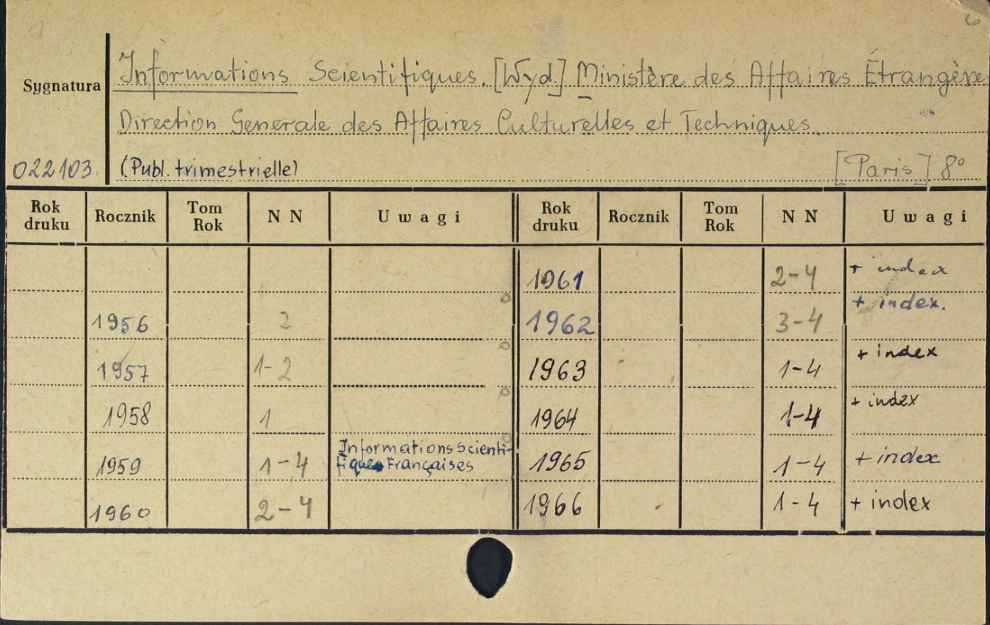 6
Sygnatura
Informations Scientifiques. [Wyd.] Ministère des Affaires Étrangère
Direction Generale des Affaires Culturelles et Techniques.
022103
(Publ. trimestrielle)
[Paris] 8°
Rok druku Rocznik Tom Rok NN Uwagi Rok druku Rocznik Tom Rok NN Uwagi
1961 2-4 + index
1956 2 1962 3-4 + index.
1957 1-2 1963 1-4 + index
1958 1 1964 1-4 + index
1959 1-4 Informations Scienti-
fiques Françaises 1965 1-4 + index
1960 2-4 1966 1-4 + index